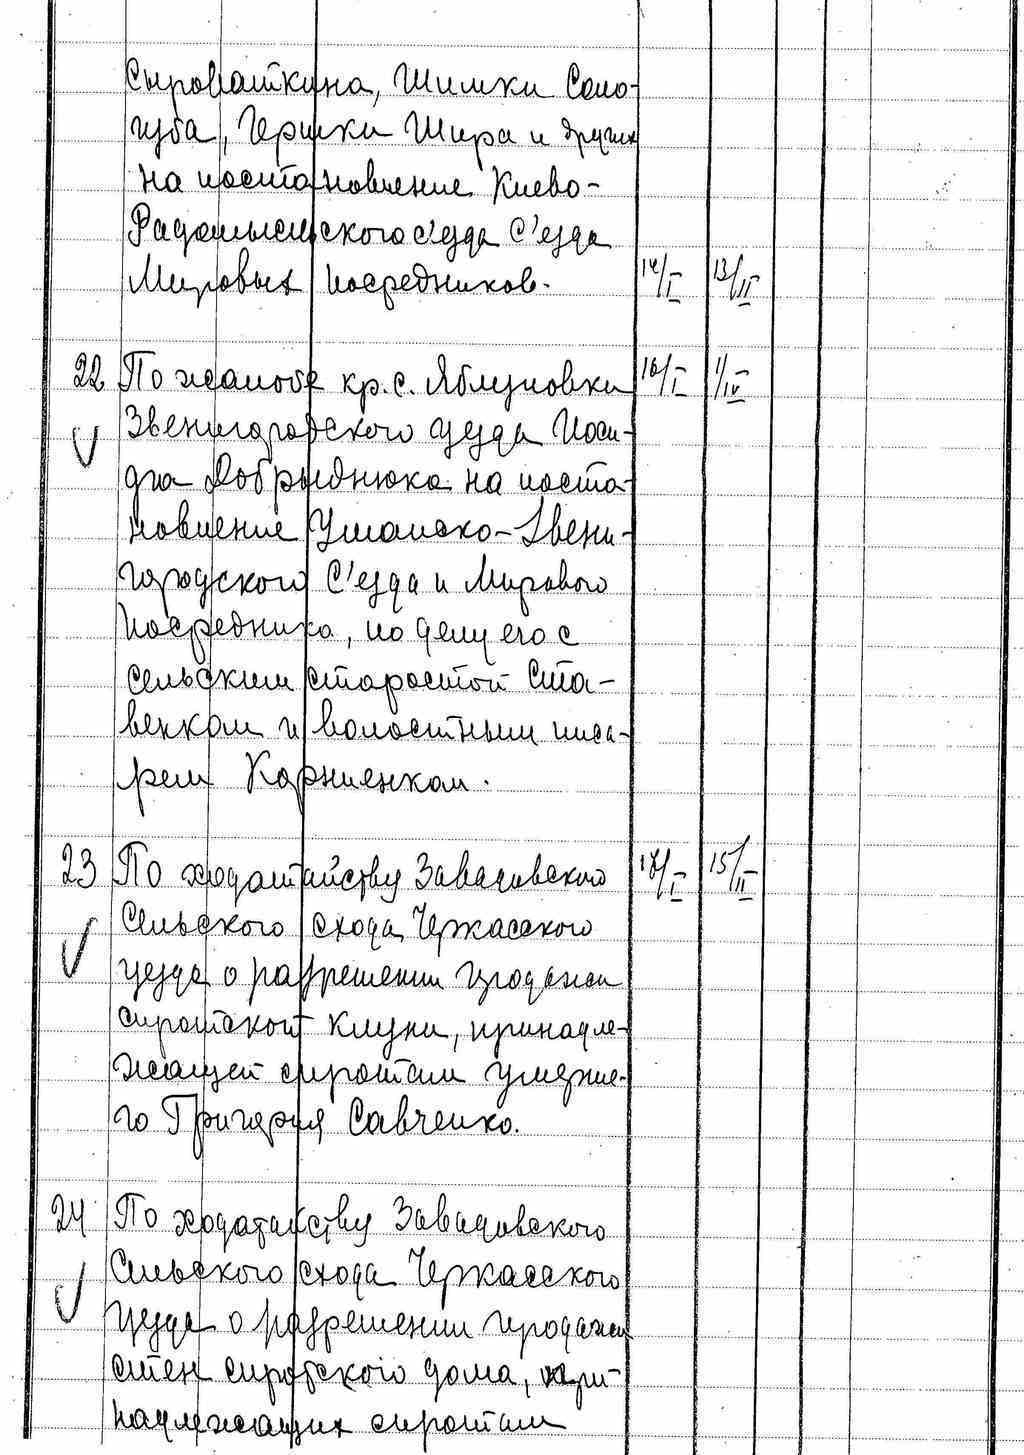 Сыроваткина, Шимки Соло-
губа, Гершки Шира и других
на постановление Киево-
Радомысльского с'езда С'езда
Мировых Посредников. 14/I 13/II
22 По жалобе кр. с. Яблуновки 16/I 1/IV
Звенигородского уезда Иоси-
фа Добрыднюка на поста-
новление Уманско-Звени-
городского С'езда и Мирового
Посредника, по делу его с
сельским старостой Ста-
венком и волостным писа-
рем Корниенком.
23 По ходатайству Завадовского 17/I 15/II
Сельского схода Черкасского
уезда о разрешении продажи
сиротской клуни, принадле-
жащей сиротам умерше-
го Григория Савченко.
24 По ходатайству Завадовского
Сельского схода Черкасского
уезда о разрешении продажи
стен сиротского дома, при-
надлежащих сиротам